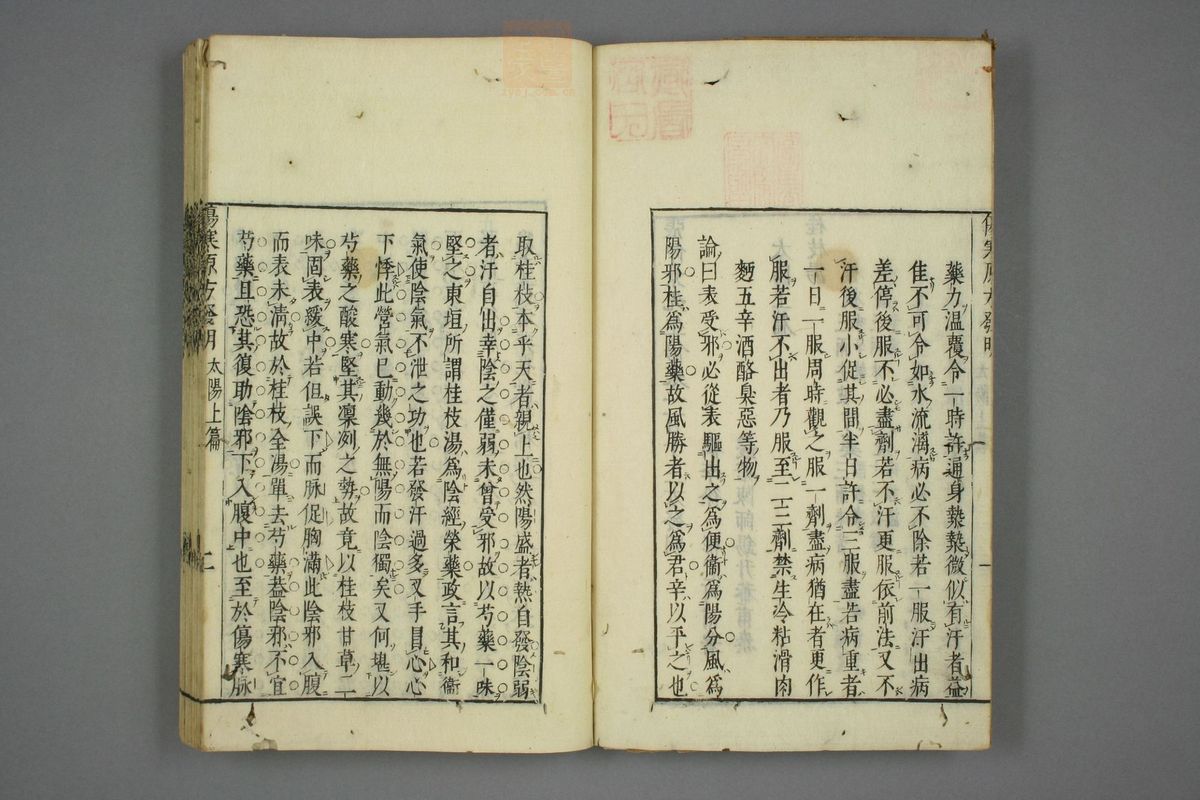 藥力溫覆令一時許遍身漐漐微似有汗者益
佳不可令如水流漓病必不除若一服汗出病
差停後服不必盡劑若不汗更服依前法又不
汗後服小促其間半日許令三服盡若病重者
一日一服周時觀之服一劑盡病猶在者更作
服若汗不出者乃服至二三劑禁生冷粘滑肉
麪五辛酒酪臭惡等物
論曰表受邪必從表驅出之爲便衞爲陽分風爲
陽邪桂爲陽藥故風勝者以之爲君辛以乎之也
取桂枝本乎天者親上也然陽盛者熱自發陰弱
者汗自出幸陰之僅弱未曾受邪故以芍藥一味
堅之東垣所謂桂枝湯爲陰經榮藥政言其和衞
氣使陰氣不泄之功也若發汗過多叉手冒心心
下悸此營氣已動幾於無陽而陰獨矣又何堪以
芍藥之酸寒堅其凜冽之勢故竟以桂枝甘草二
味固表緩中若但誤下而脉促胸滿此陰邪入腹
而表未淸故於桂枝全湯單去芍藥葢陰邪不宜
芍藥且恐其復助陰邪下入腹中也至於傷寒脉
傷寒原方發明 太陽上篇 二